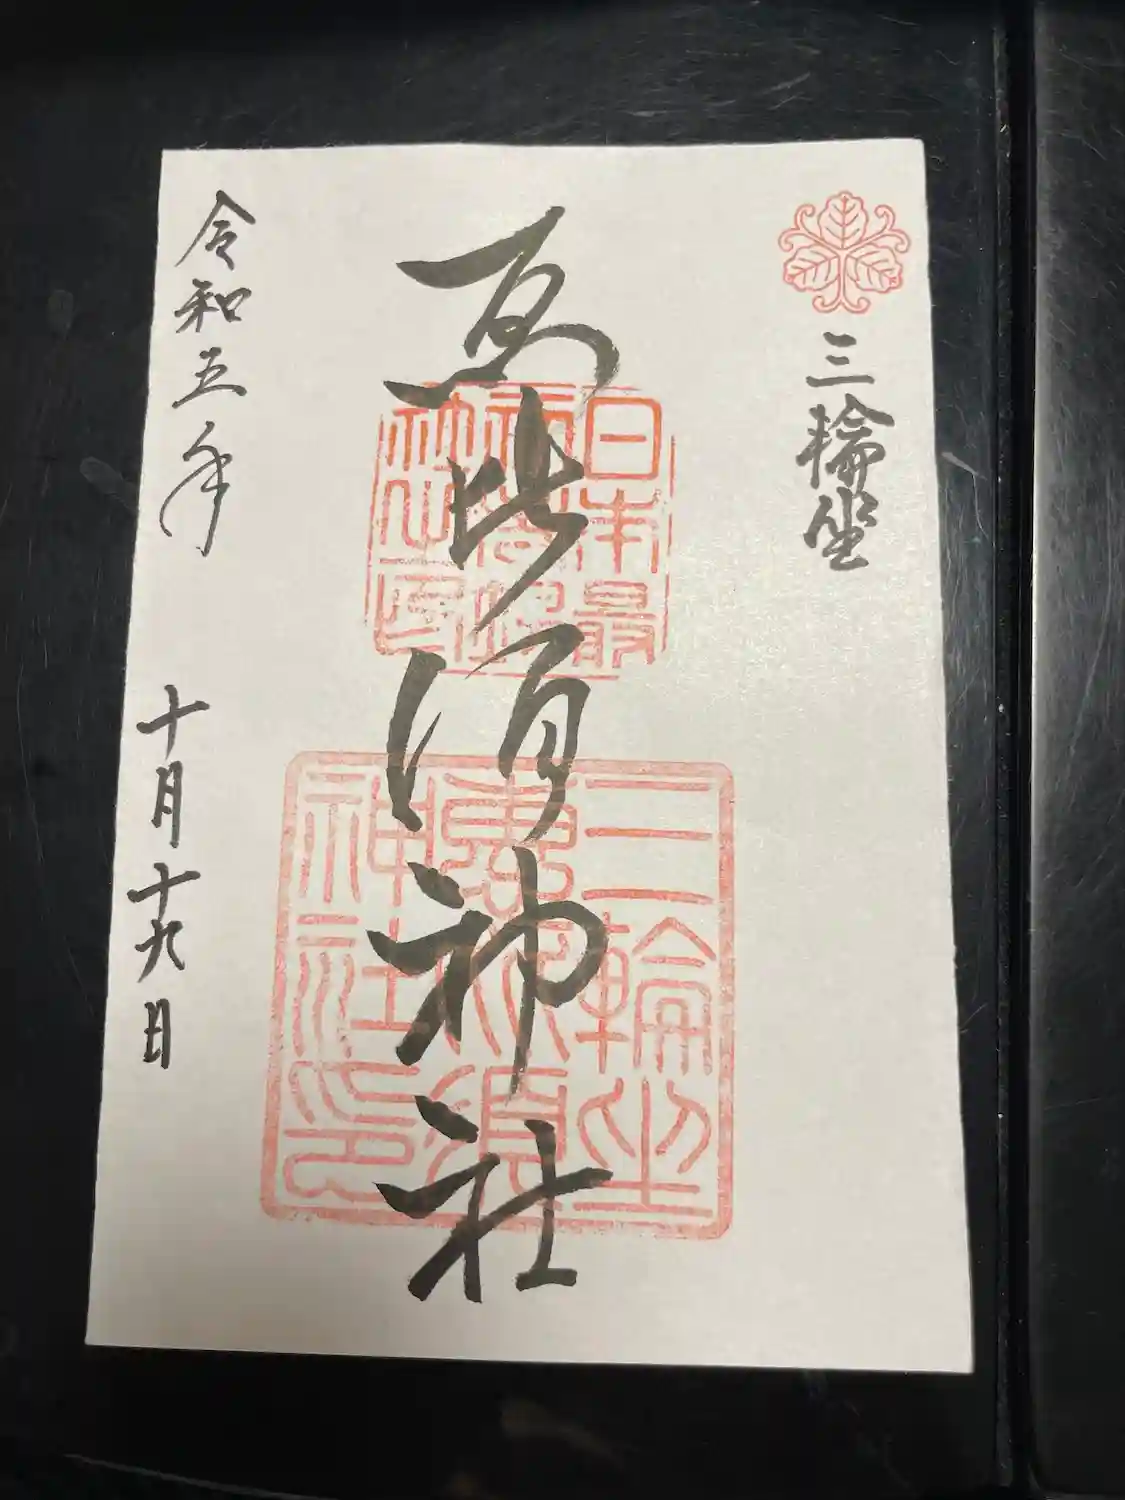 三輪坐
恵比須神社
日本最
三輪坐
恵比須
神社印
令和五年 十月十九日